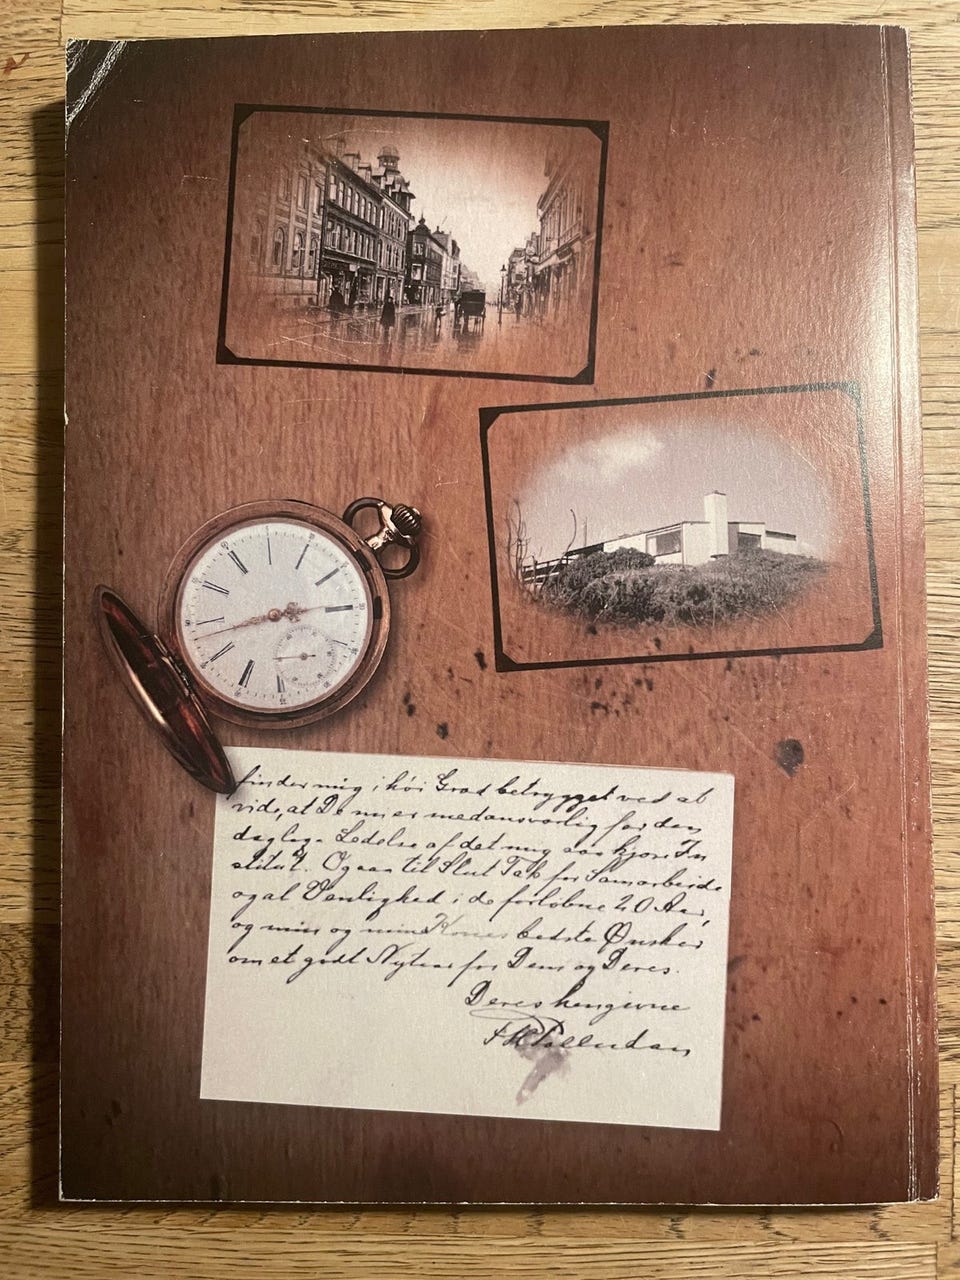 finder mig i høi Grad betrygget ved at
vide, at De nu er medansvarlig for den
daglige Ledelse af det mig saa kjære In
stitut. Ogsaa til Slut Tak for Samarbeide
og al Venlighed i de forløbne 20 Aar,
og min og min Kones bedste Ønsker
om et godt Nytaar for Dem og Deres.
Deres hengivne
Palludan